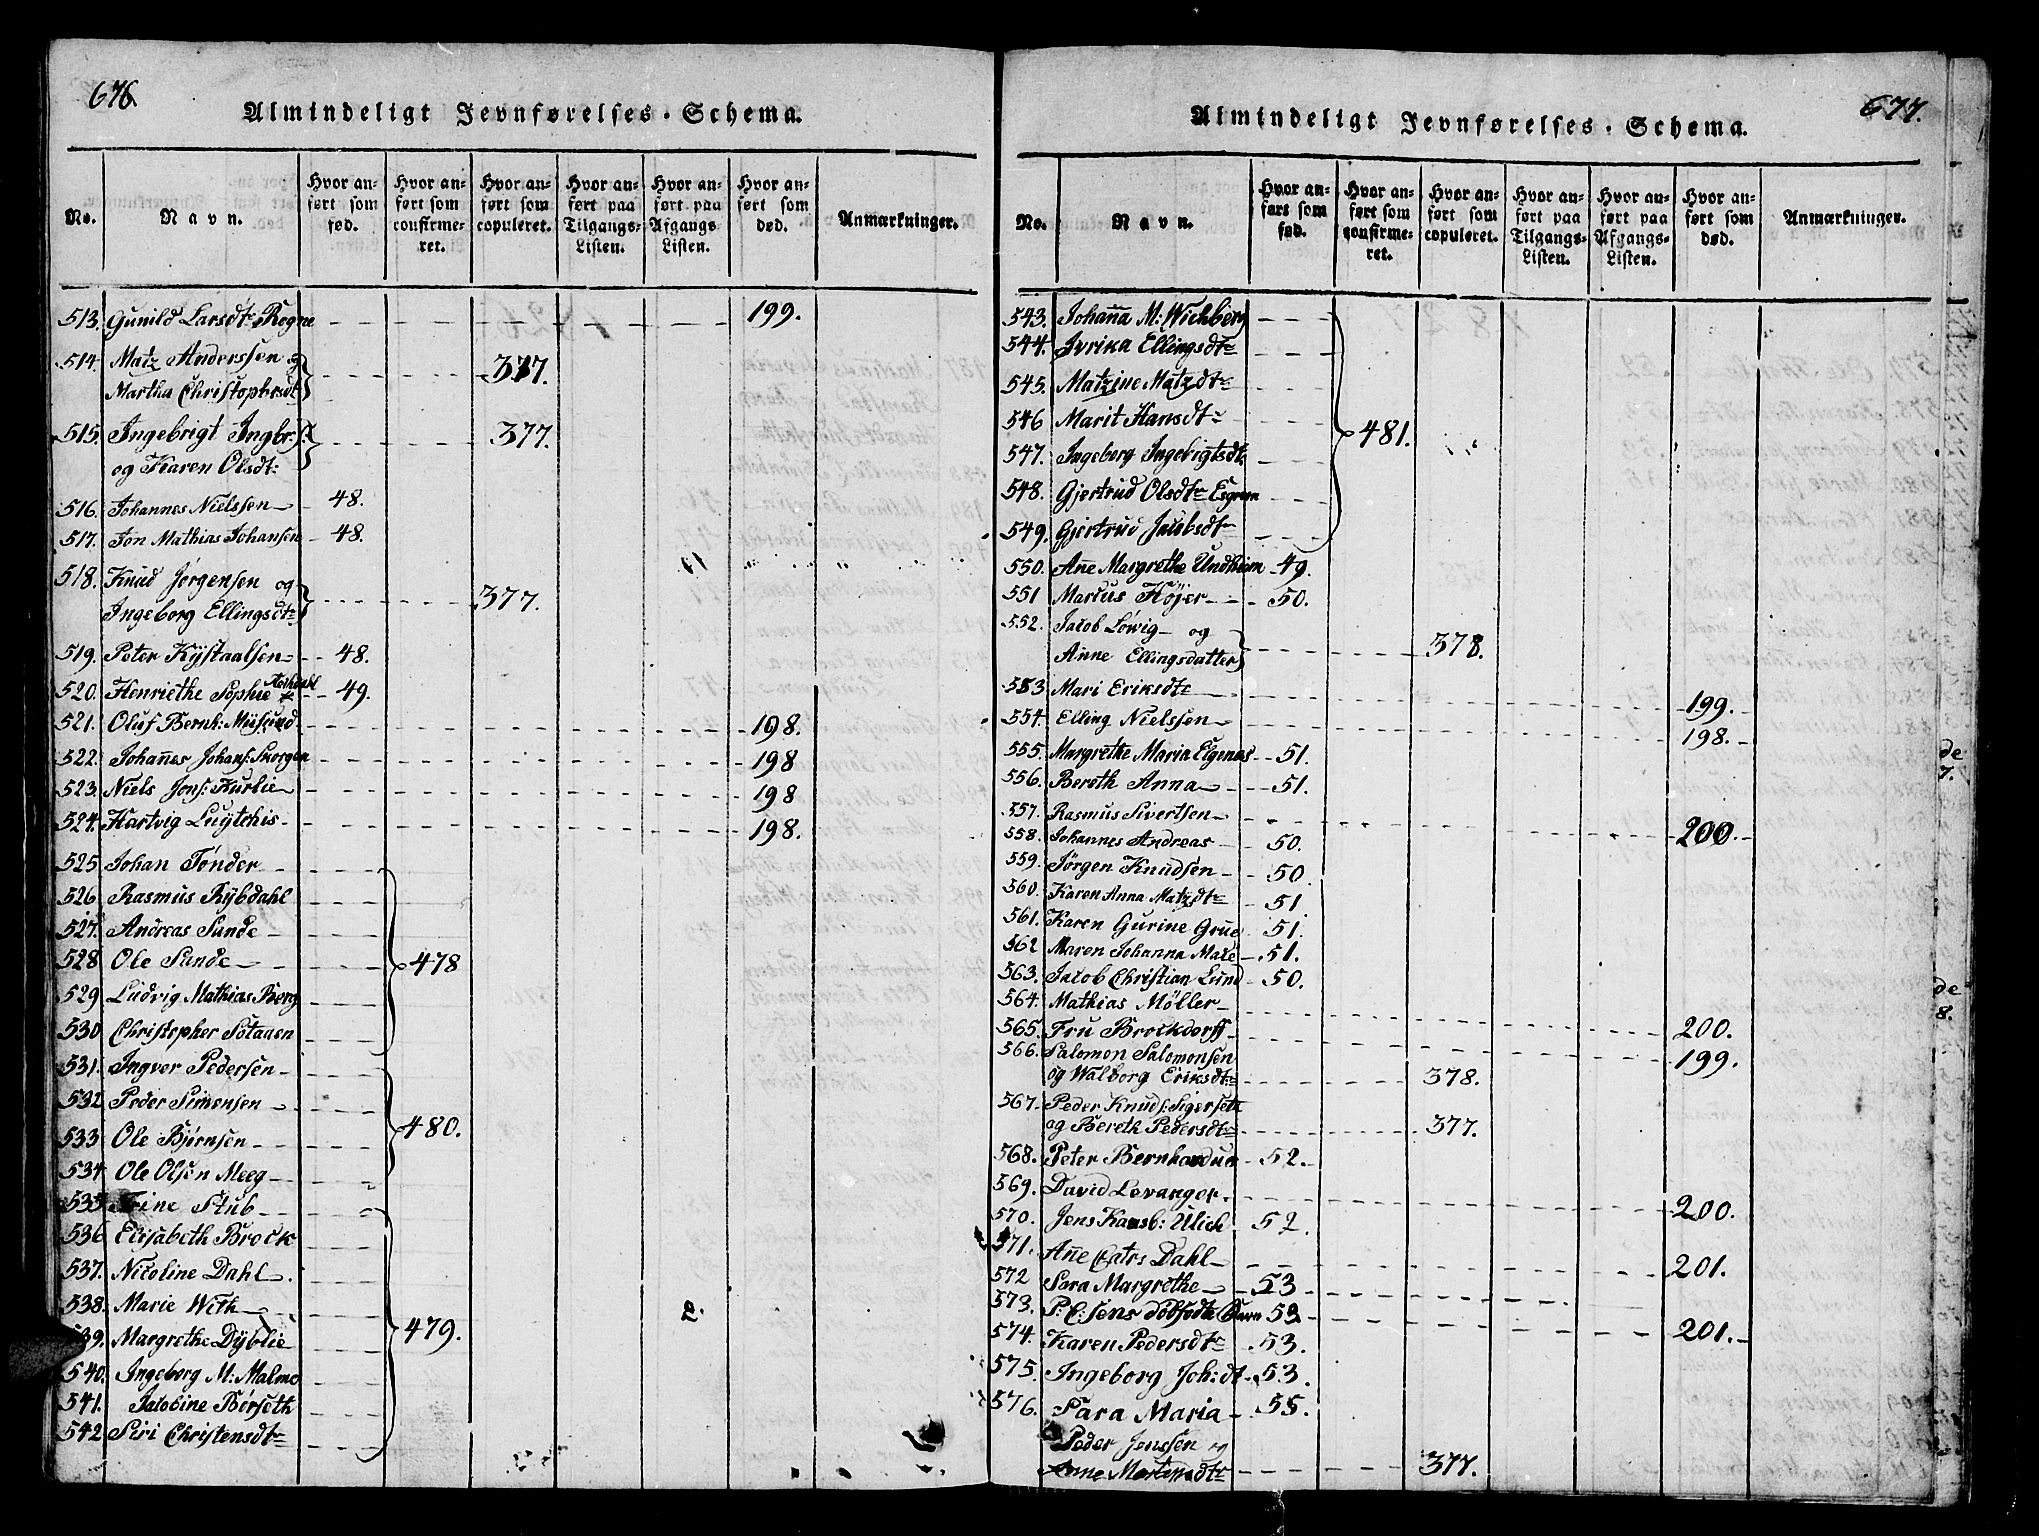 676.
Almindeligt Jevnførelses-Schema.
No. Navn. Hvor anført som fød. Hvor anført som confirmeret. Hvor anført som copuleret. Hvor anført paa Tilgangs-Listen. Hvor anført paa Afgangs Listen. Hvor anført som død. Anmærkninger.
513. Gunild Larsdtr Rogne 199.
514. Matz Anderssen og
Martha Christophersdt 377.
515. Ingebrigt Ingbr:s:
og Karen Olsdt: 377.
516. Johannes Nielssen 48.
517. Jon Mathias Johansen 48.
518. Knud Jørgensen og
Ingeborg Ellingsdtr 377.
519. Peter Kystaalsen 48.
520. Henriethe Sophie 49.
521. Oluf Bernh: Misund 198.
522. Johannes Johans: Skorgen 198
523. Niels Jons: Kurlie 198
524. Hartvig Luytchis 198.
525. Johan Tønder
526. Rasmus Rybdahl
527. Andreas Sunde
528 Ole Sunde 478
529 Ludvig Mathias Berg
530 Christopher Sotaaen
531. Ingver Pedersen
532 Peder Simensen
533 Ole Bjørnsen 480.
534 Ole Olsen Meeg
535 Trine Stub
536 Elisabeth Brock
537. Nicoline Dahl
538. Marie With 2.
539. Margrethe Dyblie 479.
540. Ingeborg M: Malme
541. Jacobine Børseth
542 Siri Christensdtr
677.
Almindeligt Jevnførelses-Schema.
No. Navn. Hvor anført som fød. Hvor anført som confirmeret. Hvor anført som copuleret. Hvor anført paa Tilgangs-Listen. Hvor anført paa Afgangs-Listen. Hvor anført som død. Anmærkninger.
543. Johanna M: Wichberg
544. Jvrika Ellingsdtr
545. Matzine Matzdtr
546 Marit Hansdtr 481.
547. Ingeborg Ingebrigtsdtr
548. Gjertrud Olsdtr
549. Gjertrud Jacobsdtr
550. Anne Margrethe Undheim 49.
551 Marcus Højer 50.
552. Jacob Løwig og
Anne Ellingsdatter 378.
553 Mari Eriksdtr 199.
554. Elling Nielssen 198.
555. Margrethe Maria Elgenes 51.
556. Bereth Anna 51.
557. Rasmus Sivertsen 200.
558. Johannes Andreas 50.
559. Jørgen Knudsen 50.
560. Karen Anna Matzsdtr 51
561. Karen Gurine Grue 51.
562 Maren Johanna Mate 51.
563. Jacob Christian Lund 50.
564. Mathias Møller 200.
565. Fru Brockdorff 199.
566. Salomon Salomonsen
og Walborg Eriksdtr 378.
567. Peder Knuds: Sigerseth
og Bereth Pedersdtr 377.
568. Peter Bernhardus 52.
569. David Levanger. 200.
570. Jens Kansb: Ulich 52.
571. Anne Catrs Dahl 201.
572 Sara Margrethe 53
573. P: C: Jens dødfødte Barn 53 201.
574. Karen Pedersdtr 53.
575. Ingeborg Joh:dt 53.
576. Sara Maria 55.
Peder Jenssen og
Anne Mortensdtr 377.
de
7.
de
8.